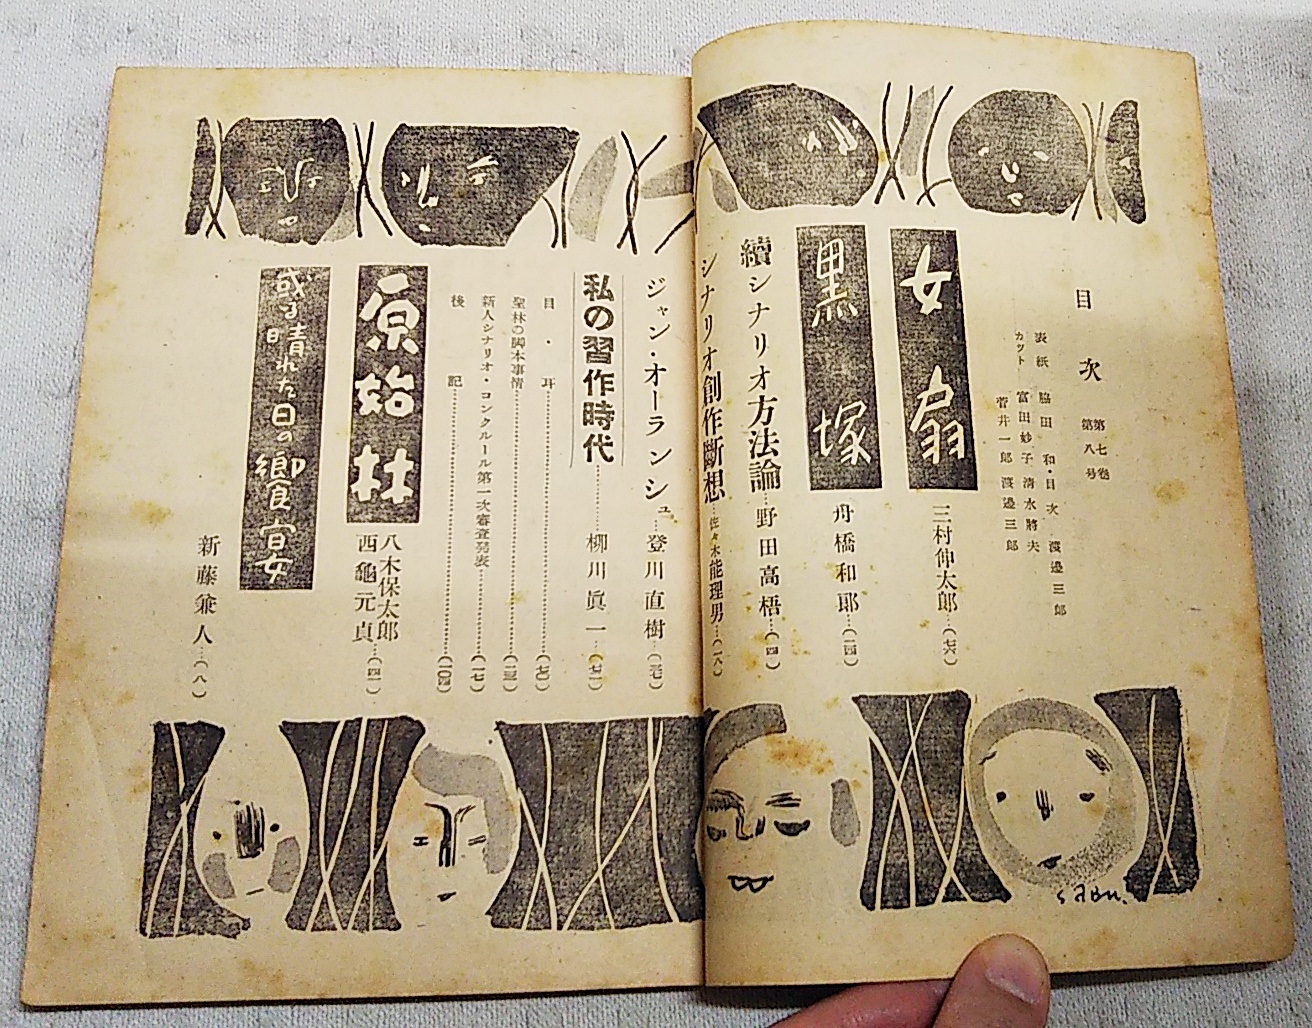 目次
第七巻
第八号
表紙 脇田 和・目次 渡邉三郎
カット 富田妙子 清水將夫
菅井一郎 渡邉三郎
女扇
三村伸太郎…(七六)
黒塚
舟橋和郎…(一四)
續シナリオ方法論…野田高梧…(四)
シナリオ創作斷想…佐々木能理男…(一八)
ジャン・オーランシュ…登川直樹…(三七)
私の習作時代…柳川眞一…(七二)
目・耳…(七〇)
聖林の脚本事情…(三三)
新人シナリオ・コンクルール第一次審査発表…(一七)
後記…(一〇四)
原始林
八木保太郎
西龜元貞…(四一)
或る晴れた日の饗宴
新藤兼人…(八)